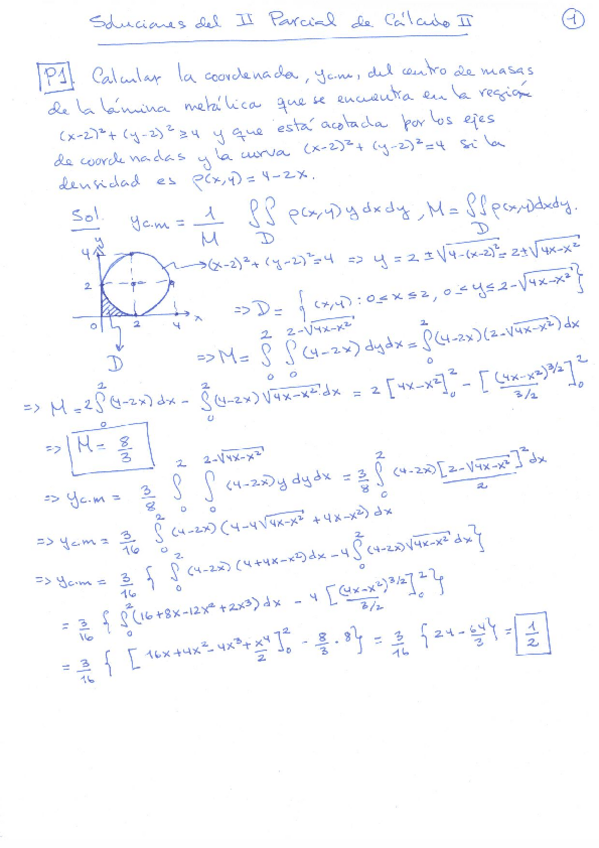 Soluciones del II Parcial de Cálculo II
1
P1 Calcular la coordenada, yc.m, del centro de masas
de la lámina metálica que se encuentra en la región
(x-2)²+(y-2)²≥4 y que está acotada por los ejes
de coordenadas y la curva (x-2)²+(y-2)²=4 si la
densidad es ρ(x,y)=4-2x.
Sol. yc.m = 1/M ∬_D ρ(x,y) y dx dy, M = ∬_D ρ(x,y)dxdy.
y
4
2
0 2 4 x
D
→(x-2)²+(y-2)²=4 => y = 2 ± √(4-(x-2)²) = 2 ± √(4x-x²)
=> D = { (x,y) : 0≤x≤2, 0≤y≤2-√(4x-x²) }
=> M = ∫_0^2 ∫_0^{2-√(4x-x²)} (4-2x) dydx = ∫_0^2 (4-2x)(2-√(4x-x²)) dx
=> M = 2∫_0^2 (4-2x)dx - ∫_0^2 (4-2x)√(4x-x²) dx = 2 [4x-x²]_0^2 - [(4x-x²)^{3/2}/3/2]_0^2
=> M = 8/3
=> yc.m = 3/8 ∫_0^2 ∫_0^{2-√(4x-x²)} (4-2x) y dy dx = 3/8 ∫_0^2 (4-2x) [2-√(4x-x²)]²/2 dx
=> yc.m = 3/16 ∫_0^2 (4-2x) (4-4√(4x-x²) + 4x-x²) dx
=> yc.m = 3/16 { ∫_0^2 (4-2x) (4+4x-x²) dx - 4∫_0^2 (4-2x)√(4x-x²) dx }
= 3/16 { ∫_0^2 (16+8x-12x²+2x³) dx - 4 [(4x-x²)^{3/2}/3/2]_0^2 }
= 3/16 { [16x+4x²-4x³+x⁴/2]_0^2 - 8/3 · 8 } = 3/16 {24 - 64/3} = 1/2